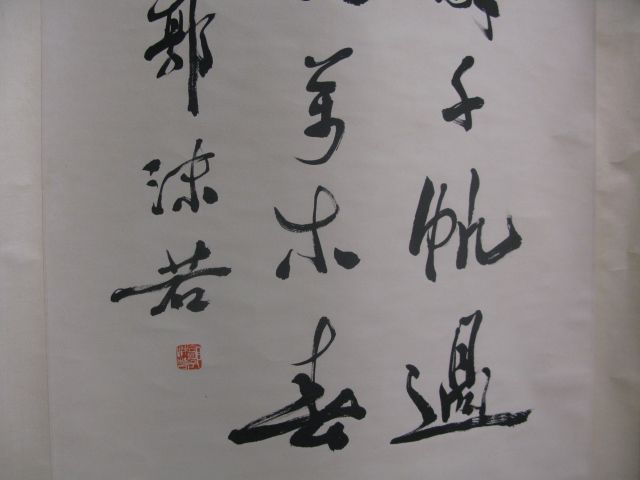 千帆過
萬木春
郭沫若